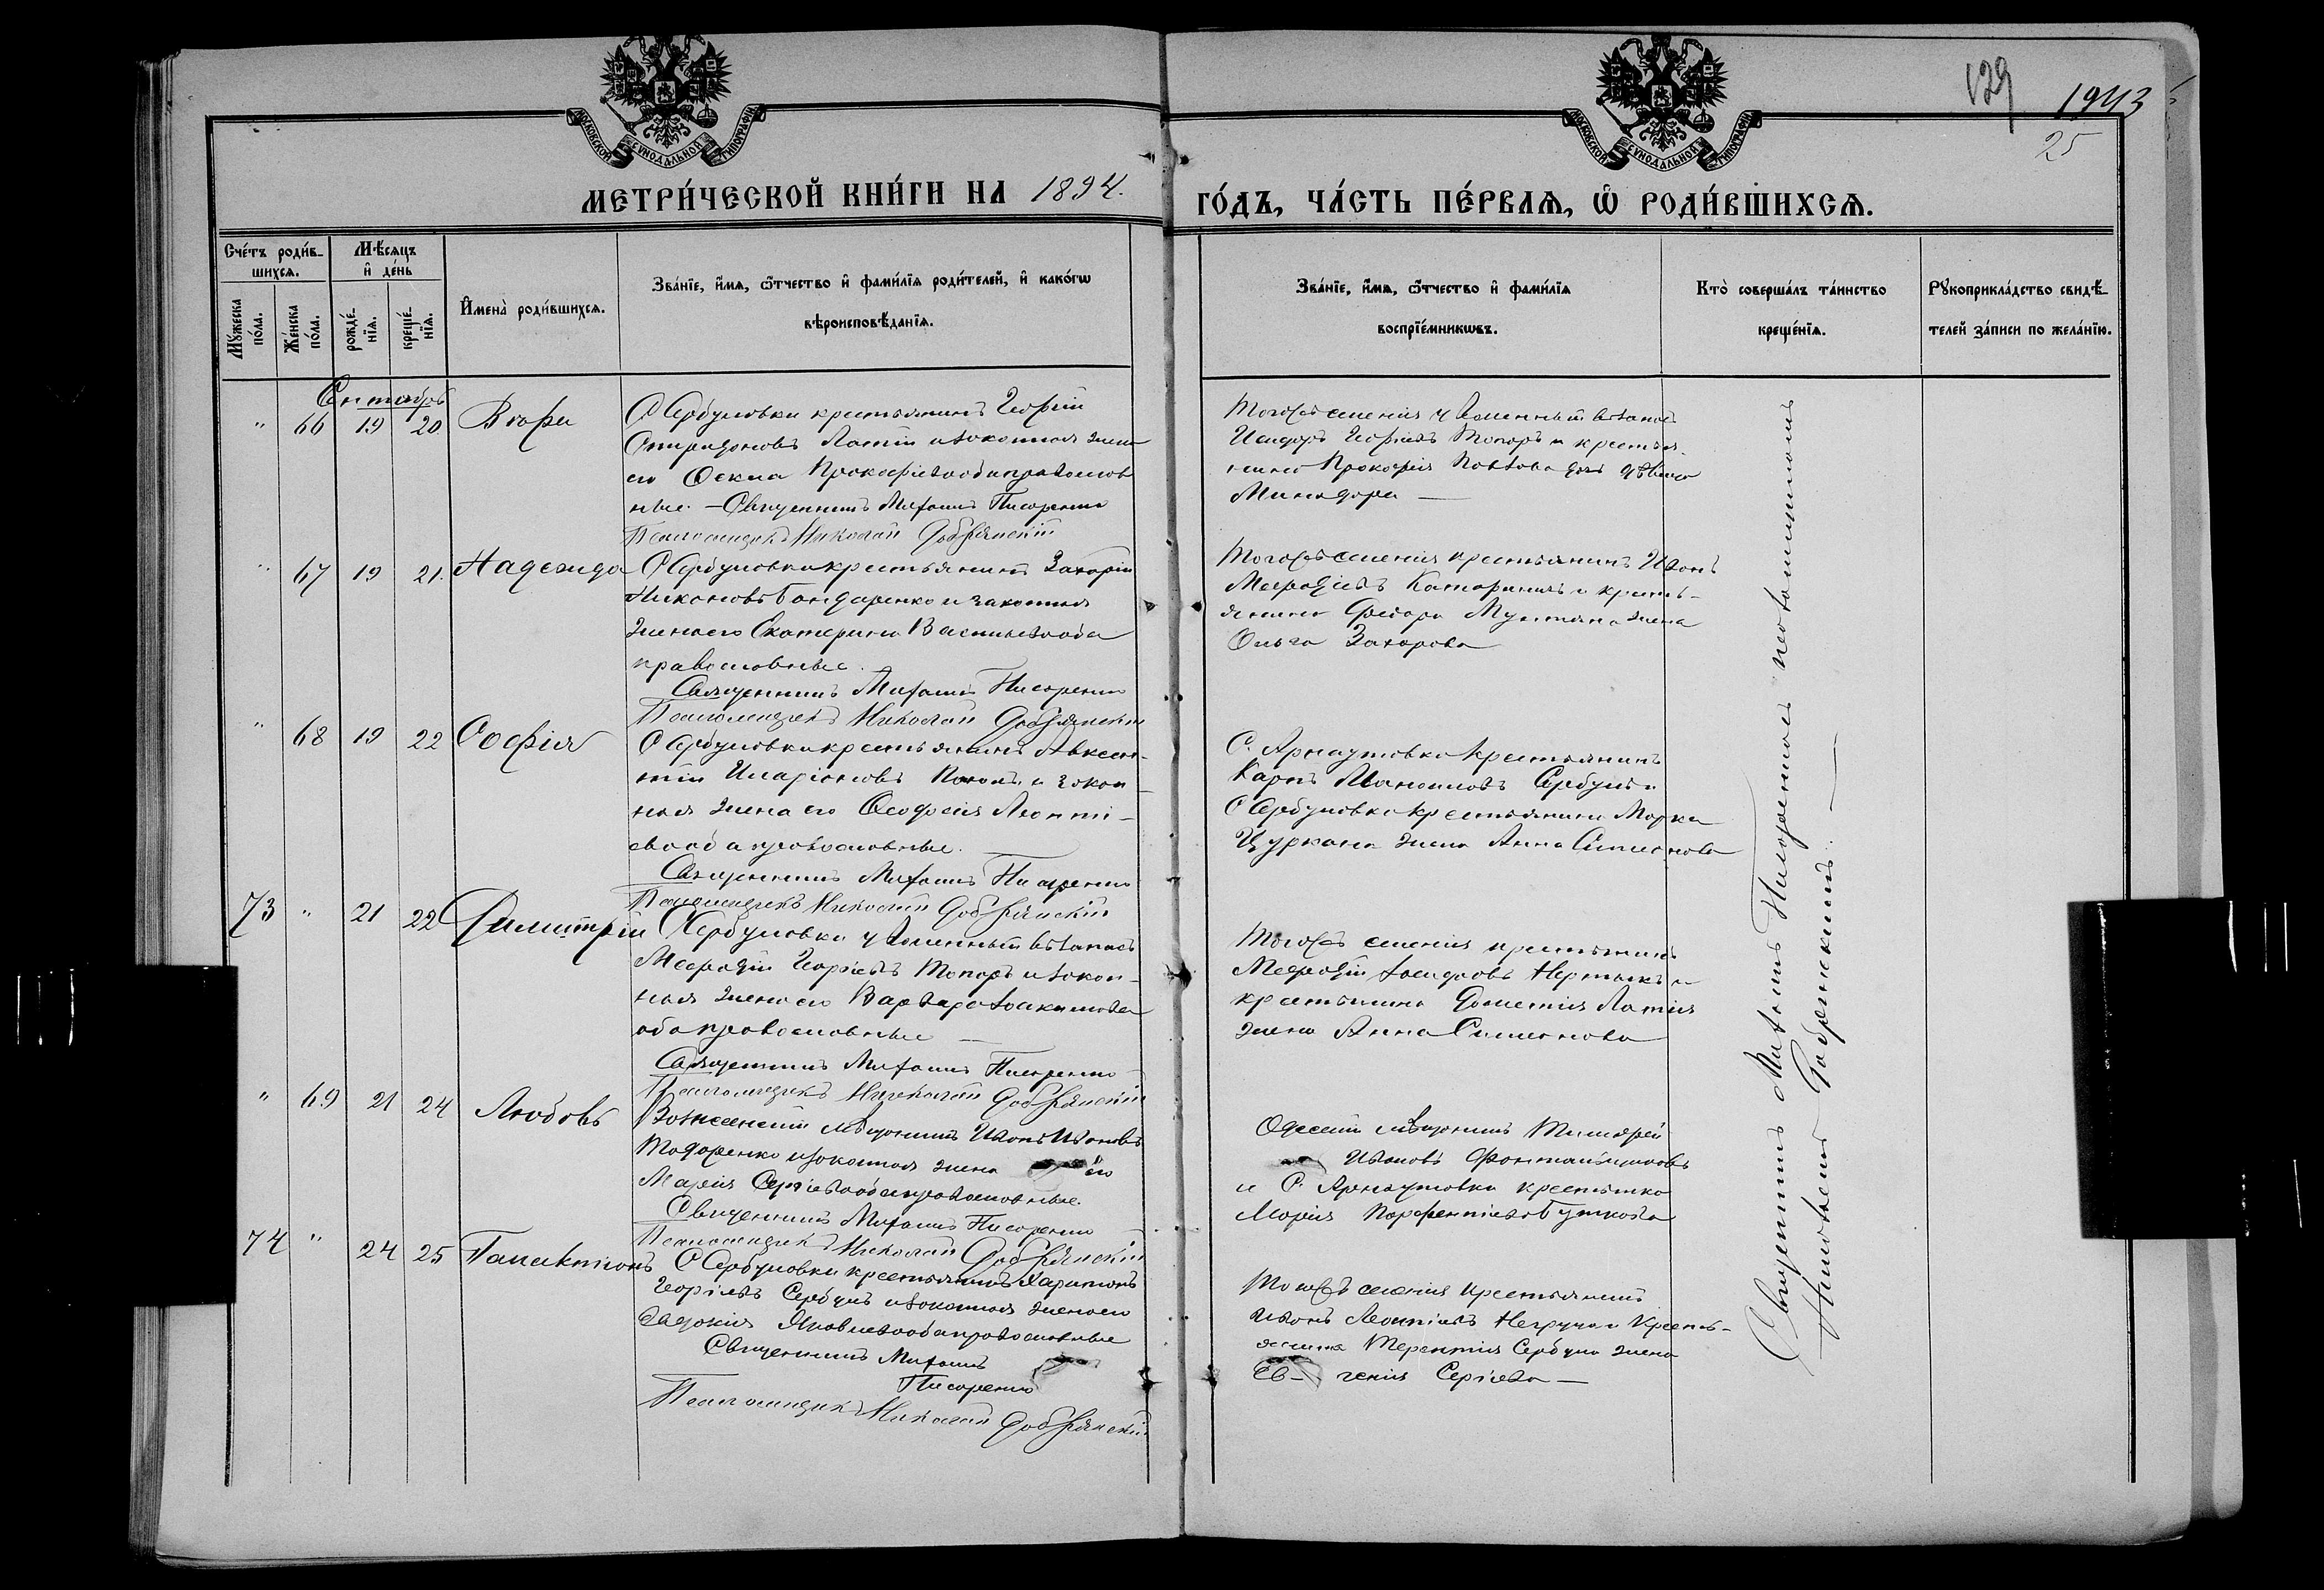 129
1943
25
МОСКОВСКОЙ СѴНОДАЛЬНОЙ ТИПОГРАФІИ
МОСКОВСКОЙ СѴНОДАЛЬНОЙ ТИПОГРАФІИ
МЕТРИ́ЧЕСКОЙ КНИ́ГИ НА 1894.
ГО́ДЪ, ЧА́СТЬ ПЕ́РВАѦ, Ѡ҆ РОДИ́ВШИХСѦ.
Сче́тъ роди́в-
шихсѧ.
Мꙋ́жеска
по́ла.
Же́нска
по́ла.
Мѣ́сѧцъ
и҆ де́нь
рожде́-
нїѧ.
креще́-
нїѧ.
И҆мена̀ роди́вшихсѧ.
Зва́нїе, и҆́мѧ, ѻ҆́тчество и҆ фами́лїѧ роди́телей, и҆ како́гѡ
вѣроисповѣ́данїѧ.
Зва́нїе, и҆́мѧ, ѻ҆́тчество и҆ фами́лїѧ
воспрїе́мникѡвъ.
Кто̀ соверша́лъ та́инство
креще́нїѧ.
Рꙋкоприкла́дство свидѣ́-
телей за́писи по жела́нїю.
Сентябрь
" 66 19 20 Вѣра
С Сербуловки крестьянинъ Георгій
Спиридоновъ Латій и законная жена
его Ѳекла Прокофіева оба православ
ные. — Священникъ Михаилъ Писаренко
Псаломщикъ Николай Добрянскій
Тогожъ селенія
Исидоръ Георгіевъ Топоръ и крестья-
нина Прокофія дочь дѣвица
Минодора —
" 67 19 21. Надежда
С Сербуловки крестьянинъ Захарій
Никоновъ Бондаренко и законная
жена его Екатерина Васильева оба
православные.
Священникъ Михаилъ Писаренко
Псаломщикъ Николай Добрянскій
Тогожъ селенія крестьянинъ Иванъ
Меѳодіевъ и кресть-
янина Ѳеодора Мунтяна жена
Ольга Захарова
" 68 19 22 Софія
С Сербуловки крестьянинъ Авксен-
тій Иларіоновъ и закон-
ная жена его Ѳеодосія Леонті-
ева оба православные.
Священникъ Михаилъ Писаренко
Псаломщикъ Николай Добрянскій
С. Арнаутовка крестьянинъ
Карпъ Мануиловъ Сербулъ и
С Сербуловки крестьянина Марка
Цуркана жена Анна Симеонова
73 " 21 22 Димитрій
С Сербуловки
Меѳодій Георгіевъ Топоръ и закон-
ная жена его Варвара Іоакимова
оба православные —
Священникъ Михаилъ Писаренко
Псаломщикъ Николай Добрянскій
Тогожъ селенія крестьянинъ
Меѳодій и
крестьянина Дометія Латія
жена Анна Симеонова
" 69 21 24 Любовь
Вознесенскій мѣщанинъ Иванъ Ивановъ
Тодоренко и законная жена его
Марія Сергіева оба православные.
Священникъ Михаилъ Писаренко
Псаломщикъ Николай Добрянскій
Одесскій мѣщанинъ Тимоѳей
Ивановъ
и С. Арнаутовки крестьянка
Марія Парфентіева Буткова
74 " 24 25 Галактіонъ
С Сербуловки крестьянинъ Харитонъ
Георгіевъ Сербулъ и законная жена его
Евдокія Яковлева оба православные
Священникъ Михаилъ
Писаренко
Псаломщикъ Николай Добрянскій
Тогожъ селенія крестьянинъ
Иванъ Леонтіевъ и кресть-
янина Терентія Сербула жена
Ев- генія Сергіева —
Священникъ Михаилъ Писаренко съ псаломщикомъ
Николаемъ Добрянскимъ. —